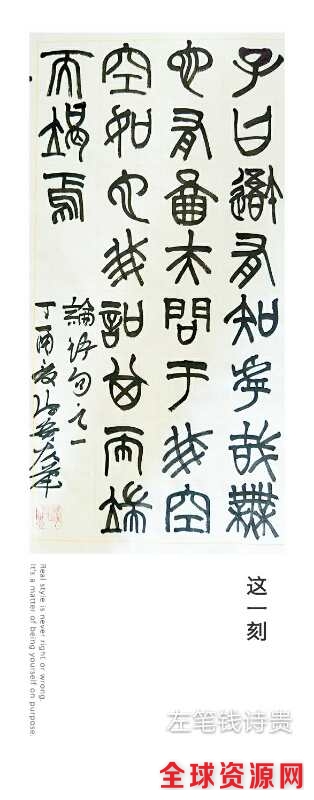 子曰吾有知乎哉無
也有啚夫問于我空
空如也我叩其兩端
而竭焉
論語句之一
丁酉夏
这一刻
Real style is never right or wrong.
It's a matter of being yourself on purpose.
左笔钱诗贵
全球资源网